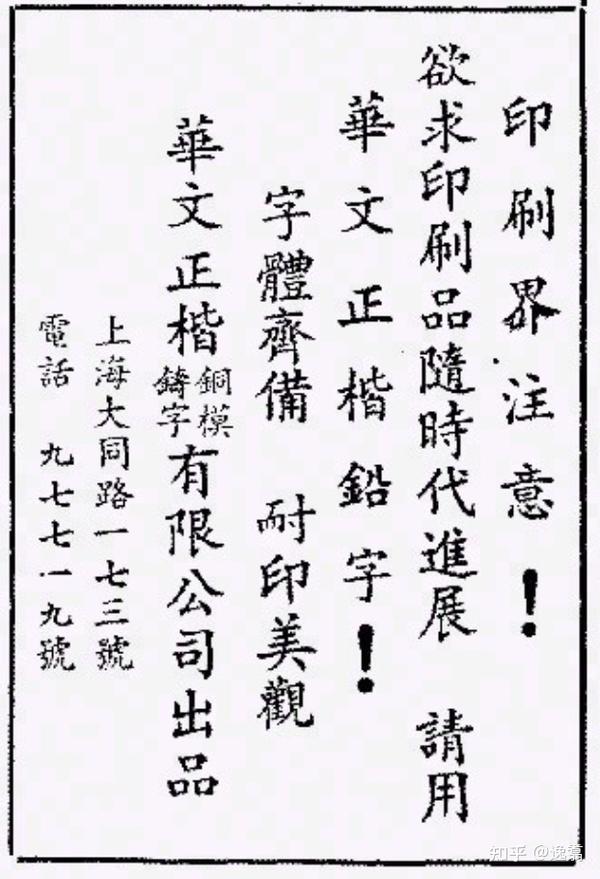 印刷界注意！
欲求印刷品隨時代進展　請用
華文正楷鉛字！
字體齊備　耐印美觀
華文正楷銅模鑄字有限公司出品
上海大同路一七三號
電話　九七七一九號
知乎 @逸篙